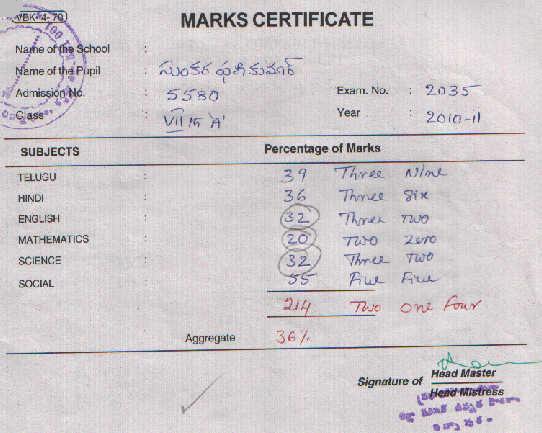 VBK-4-70
MARKS CERTIFICATE
Name of the School :
Name of the Pupil :
Admission No. : 5580 Exam. No. : 2035
Class : VII 'A' Year : 2010-11
SUBJECTS Percentage of Marks
TELUGU : 39 Three Nine
HINDI : 36 Three Six
ENGLISH : 32 Three Two
MATHEMATICS : 20 Two Zero
SCIENCE : 32 Three Two
SOCIAL : 55 Five Five
214 Two One Four
Aggregate 36%
Signature of Head Master
Head Mistress